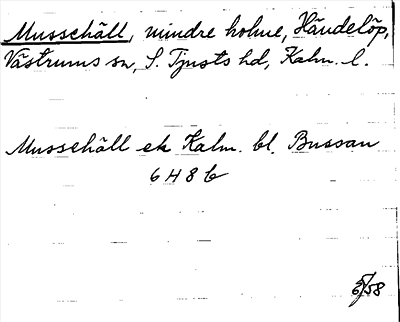 Mussehäll, mindre holme, Händelöp,
Västrums sn, S. Tjusts hd, Kalm. l.
Mussehäll ek Kalm. bl. Bussan
6 H 8 b